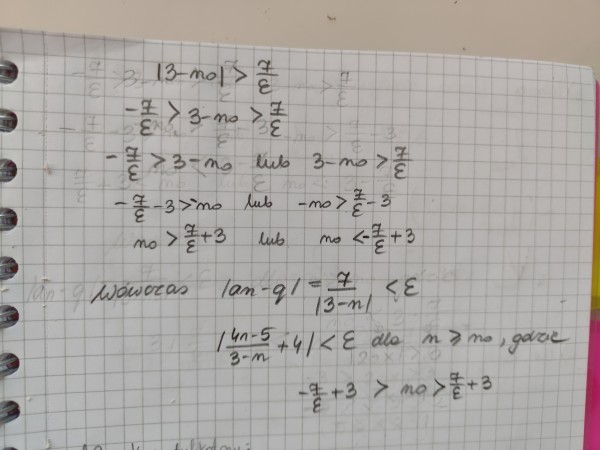 |3-n0| > 7/ε
-7/ε > 3-n0 > 7/ε
-7/ε > 3-n0 lub 3-n0 > 7/ε
-7/ε -3 > -n0 lub -n0 > 7/ε -3
n0 > 7/ε +3 lub n0 < -7/ε +3
Wówczas |an-g| = 7/|3-n| < ε
|(4n-5)/(3-n) +4| < ε dla n ≥ n0, gdzie
-7/ε +3 > n0 > 7/ε +3